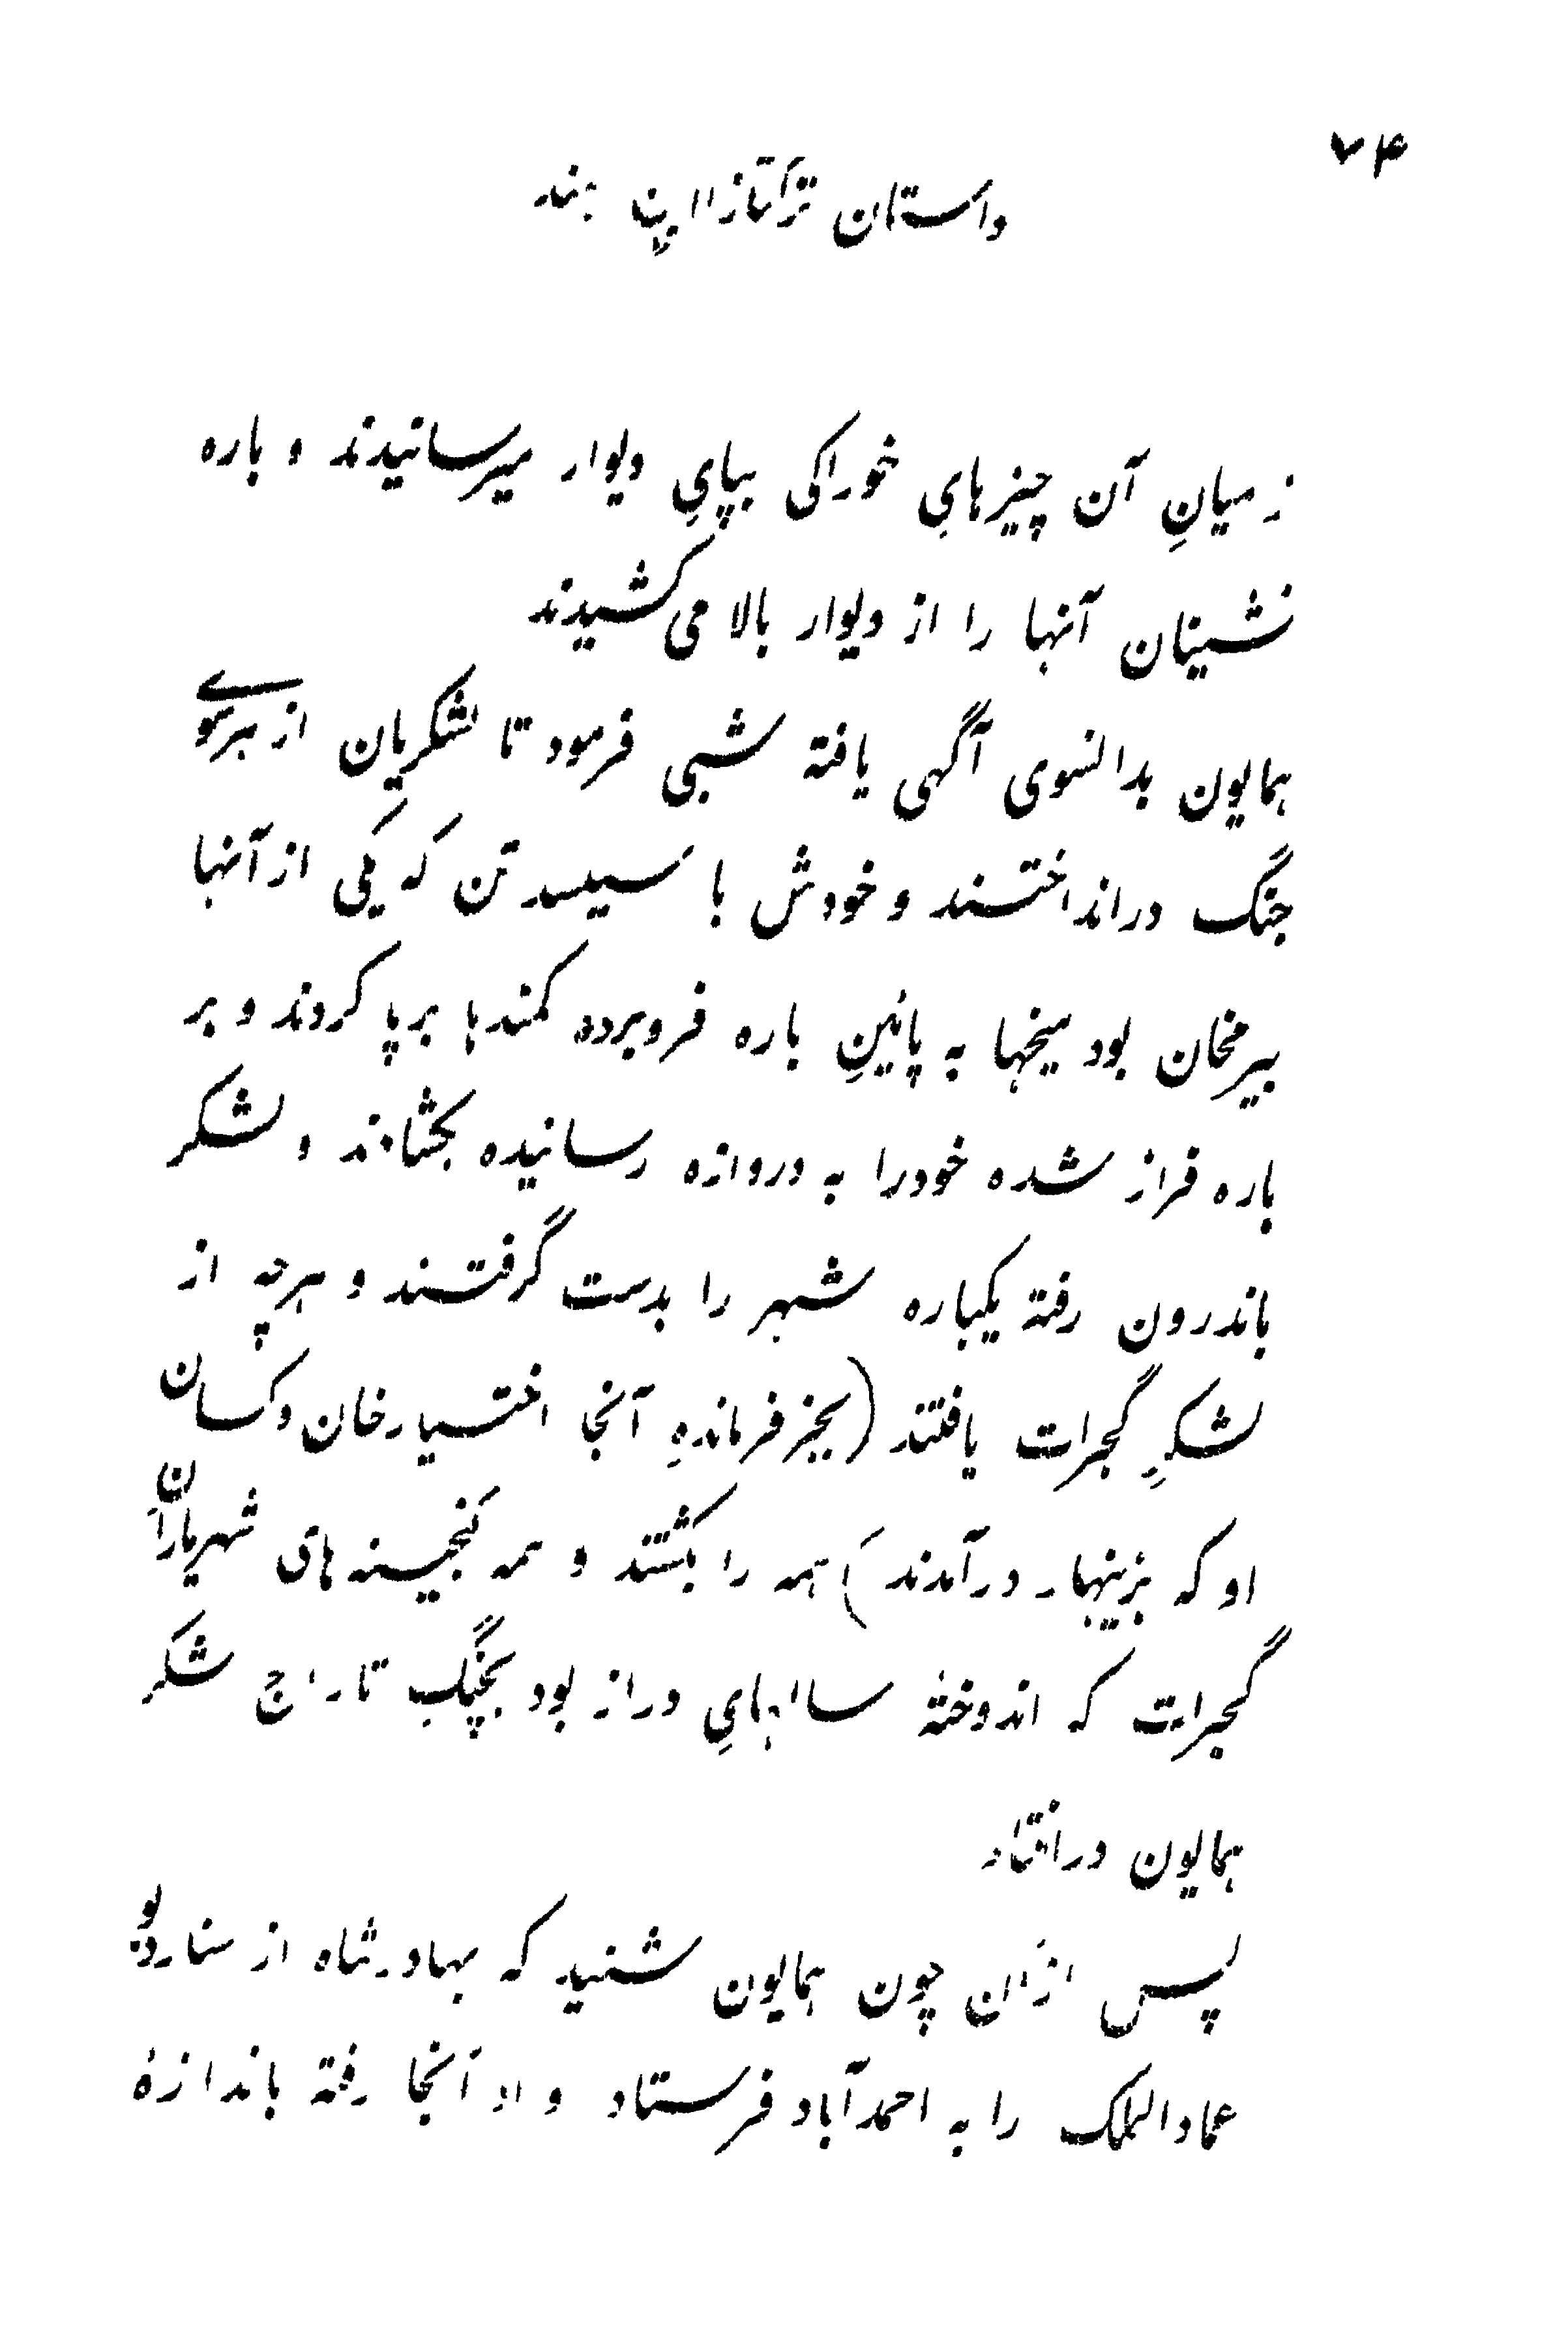 ۷۴
داستان ترکتازان هند
ز میانِ آن چیزهایِ خوراکی بپایِ دیوار میرسانیدند و باره
نشینان آنها را از دیوار بالا می کشیدند
همایون بدانسوی آگهی یافته شبی فرمود تا لشکریان از هرسوے
جنگ درانداختند و خودش با سیسد تن که یکی از آنها
بیرمخان بود میخها به پائینِ باره فروبرده کمندها برپا کردند و بر
باره فراز شده خودرا به دروازه رسانیده بکشادند و لشکر
باندرون رفته یکباره شهر را بدست گرفتند و هرچه از
لشکرِ گجرات یافتند (بجز فرماندهِ آنجا اختیارخان و کسان
او که بزینهار درآمدند) همه را بکشتند و همه گنجینه های شهریارانِ
گجرات که اندوختهٔ سالهایِ دراز بود بچنگِ تاراج لشکر
همایون درافتاد
پس ازان چون همایون شنید که بهادرشاه از بندردیو
عمادالملک را به احمدآباد فرستاد و او آنجا رفته باندازهٔ